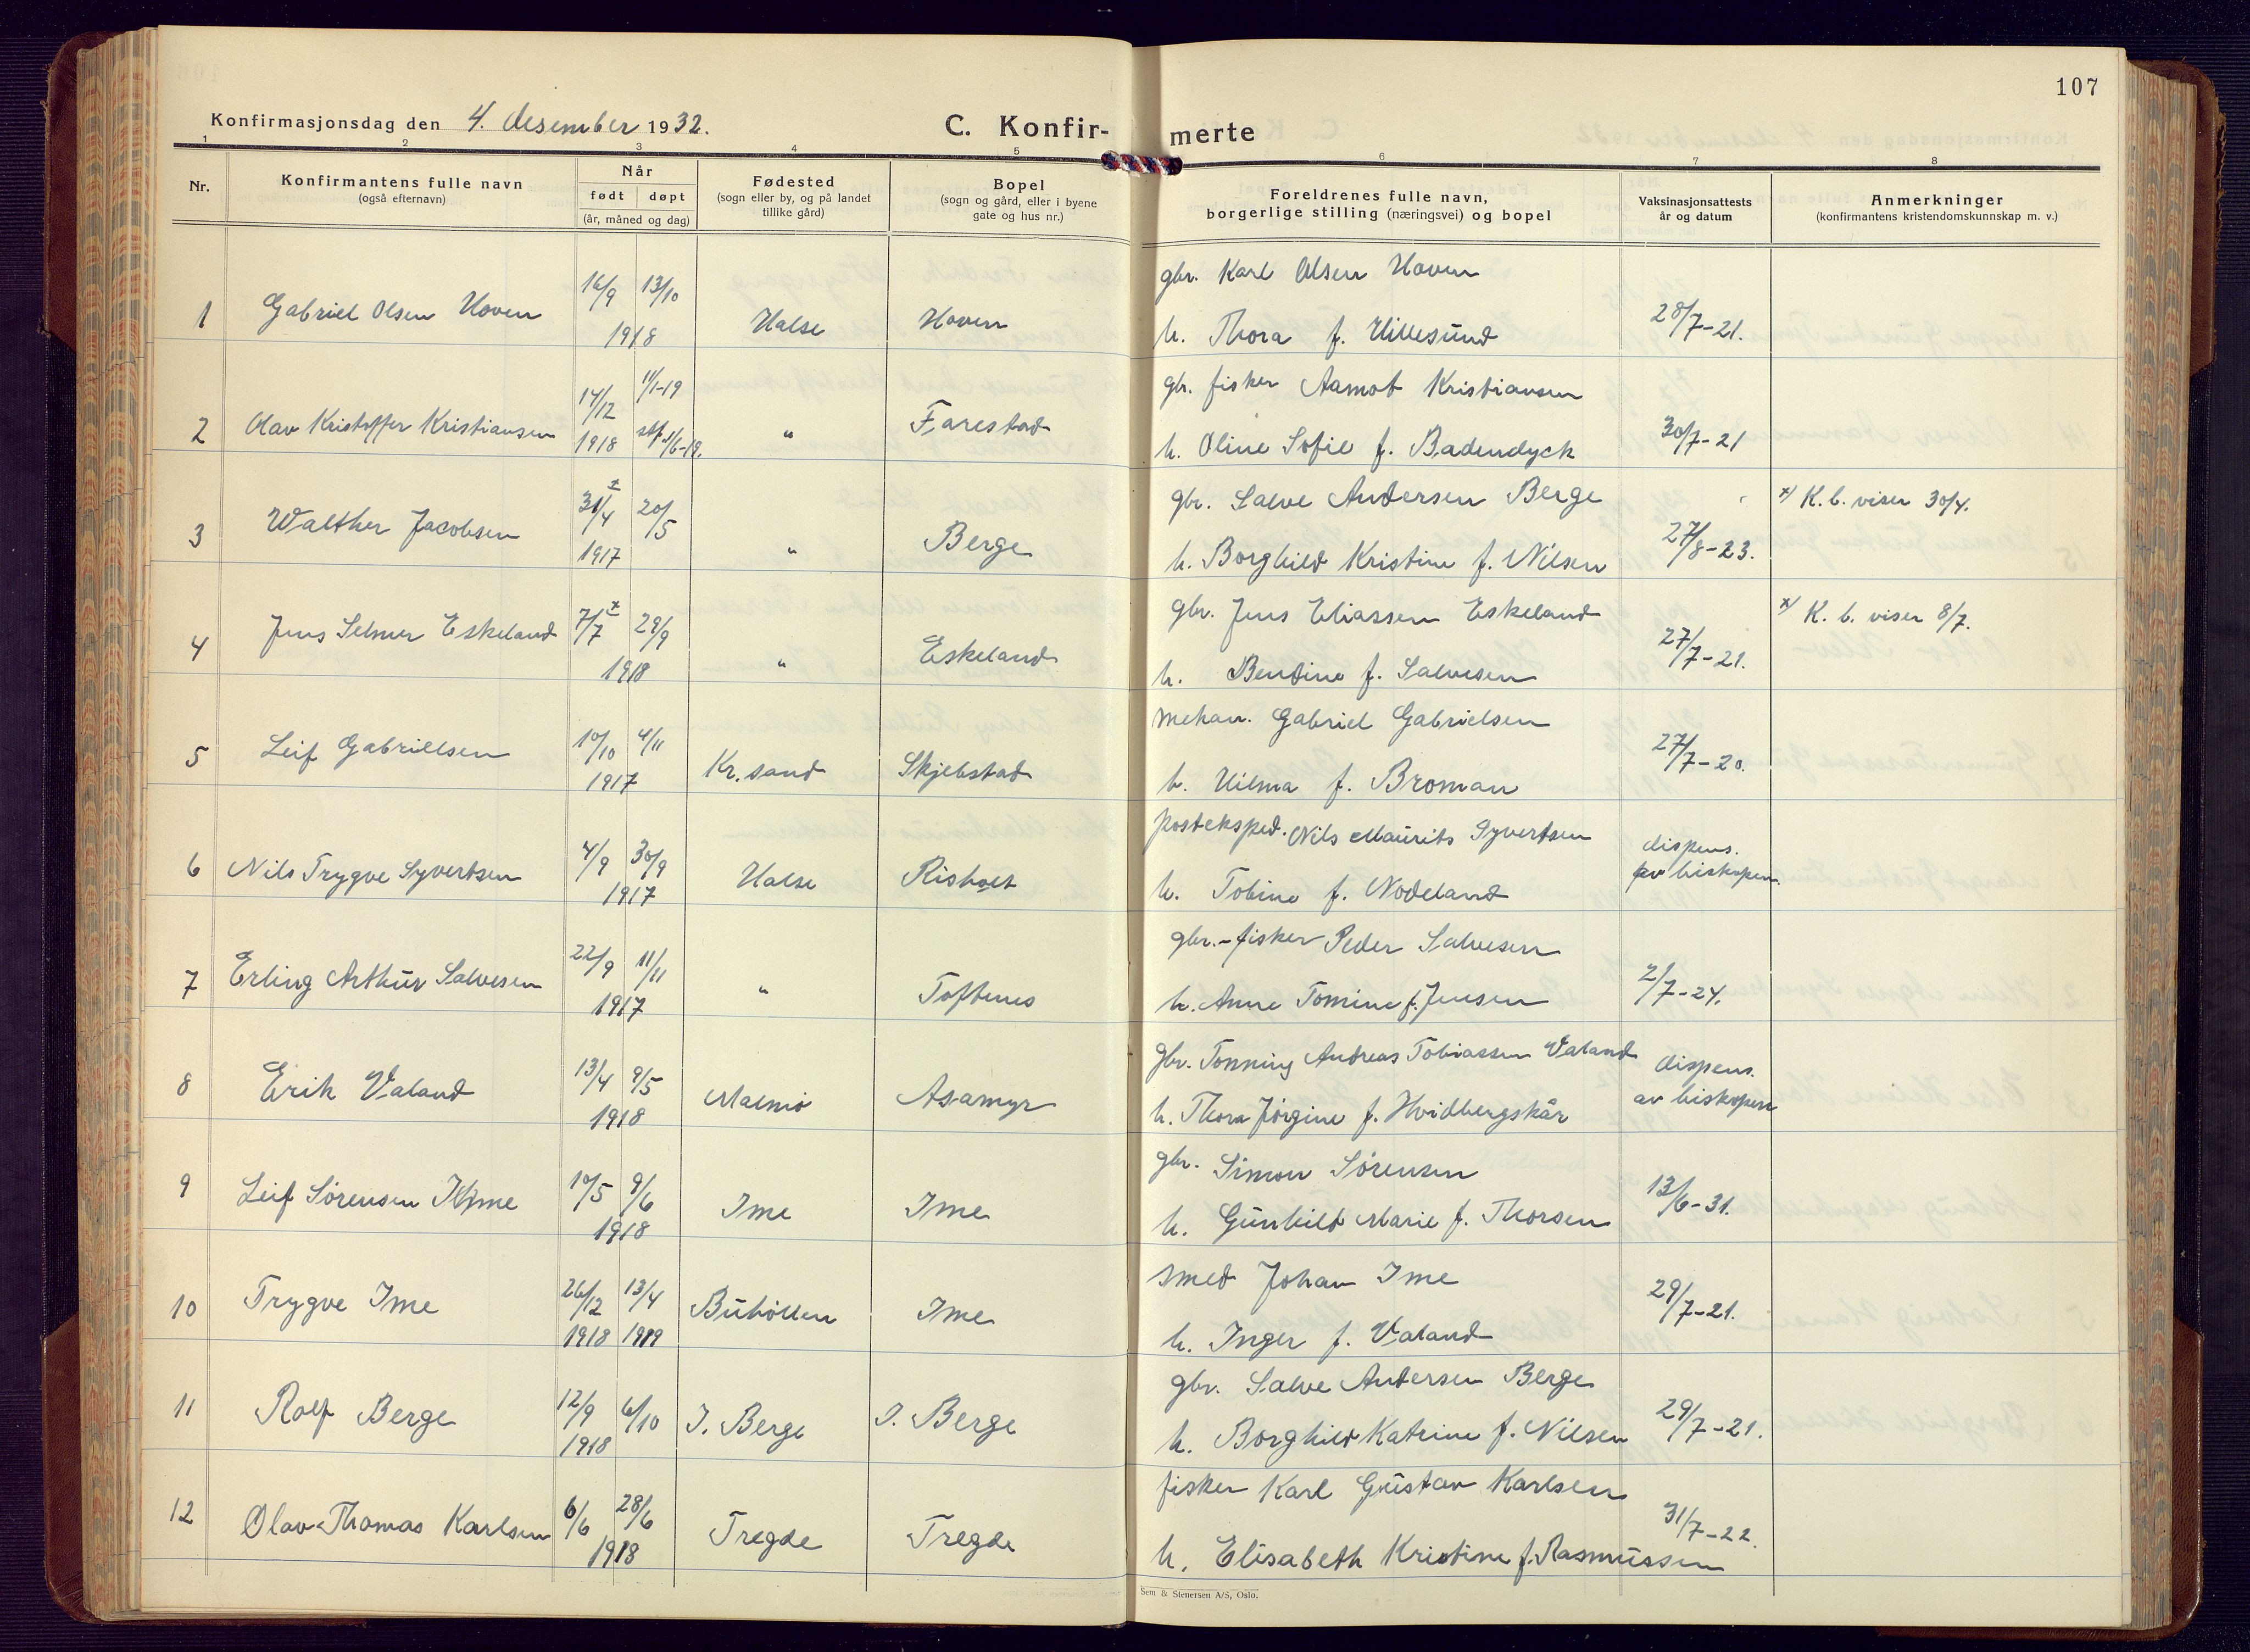 107
Konfirmasjonsdag den 4. desember 1932.
C. Konfir- merte
1 2 3 4 5 6 7 8
Nr.
Konfirmantens fulle navn
(også efternavn)
Når
født døpt
(år, måned og dag)
Fødested
(sogn eller by, og på landet
tillike gård)
Bopel
(sogn og gård, eller i byene
gate og hus nr.)
Foreldrenes fulle navn,
borgerlige stilling (næringsvei) og bopel
Vaksinasjonsattests
år og datum
Anmerkninger
(konfirmantens kristendomskunnskap m. v.)
gbr. Karl Olsen Hoven
1 Gabriel Olsen Hoven 16/9 13/10 1918 Halse Hoven
h. Thora f. Hillesund 28/7-21.
gbr. fisker Aamot Kristiansen
2 Olav Kristoffer Kristiansen 14/12 1918 11/1-19 stf. 1/6-19. " Farestad
h. Oline Sofie f. Badendyck 30/7-21
gbr. Salve Andersen Berge x) K. b. viser 30/4.
3 Walther Jacobsen 31/4 x 20/5 1917 " Berge
h. Borghild Kristine f. Nilsen 27/8-23.
gbr. Jens Eliassen Eskeland x) K. b. viser 8/7.
4 Jens Selmer Eskeland 7/7 x 29/9 1918 " Eskeland
h. Bentine f. Salvesen 27/7-21.
mekan. Gabriel Gabrielsen
5 Leif Gabrielsen 10/10 4/11 1917 Kr.sand Skjebstad
h. Hilma f. Broman 27/7-20.
posteksped. Nils Maurits Syvertsen
6 Nils Trygve Syvertsen 4/9 30/9 1917 Halse Risholt
h. Tobine f. Nodeland dispens. av biskopen.
gbr.-fisker Peder Salvesen
7 Erling Arthur Salvesen 22/9 11/11 1917 " Toftenes
h. Anne Tomine f. Jensen 2/7-24.
gbr. Tønning Andreas Tobiassen Valand
8 Erik Valand 13/4 9/5 1918 Malmø Asamyr
h. Thora Jørgine f. Hvidbergskår dispens. av biskopen
gbr. Simon Sørensen
9 Leif Sørensen Ime 10/5 9/6 1918 Ime Ime
h. Gunhild Marie f. Thorsen 13/6-31.
smed Johan Ime
10 Trygve Ime 26/12 1918 13/4 1919 Buhølen Ime
h. Inger f. Valand 29/7-21.
gbr. Salve Andersen Berge
11 Rolf Berge 12/9 6/10 1918 I. Berge I. Berge
h. Borghild Katrine f. Nilsen 29/7-21.
fisker Karl Gustav Karlsen
12 Olav Thomas Karlsen 6/6 28/6 1918 Tregde Tregde
h. Elisabeth Kristine f. Rasmussen 31/7-22.
Sem & Stenersen A/S, Oslo.